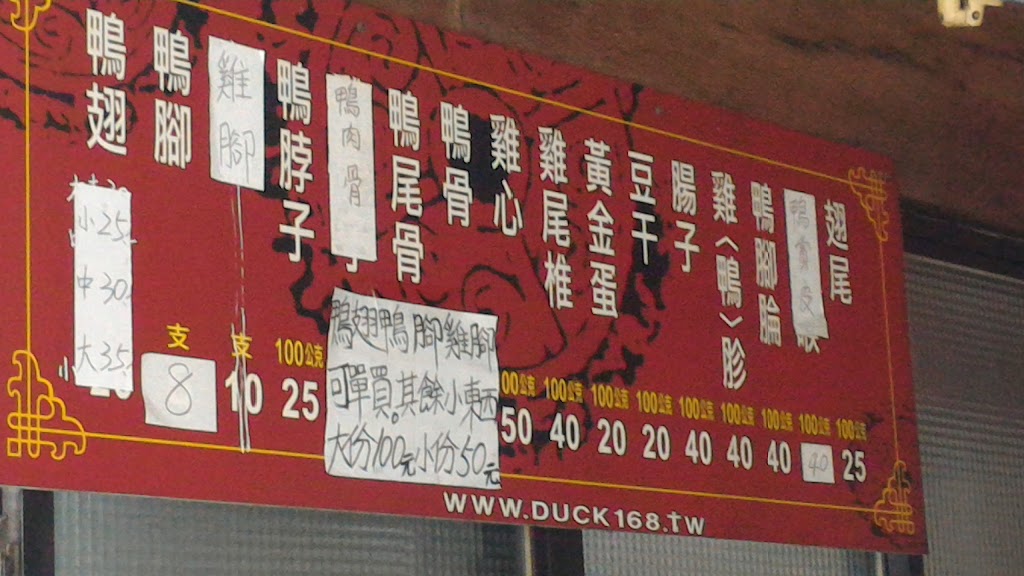 鴨翅
小25
中30
大35
鴨腳
支
8
雞腳
支
10
鴨脖子
100公克
25
鴨肉骨
鴨尾骨
鴨骨
鴨翅鴨腳雞腳
可單買。其餘小東西
大份100元小份50元
雞心
100公克
50
雞尾椎
100公克
40
黃金蛋
100公克
20
豆干
100公克
20
腸子
100公克
40
雞〈鴨〉胗
100公克
40
鴨腳腀
100公克
40
100公克
40
翅尾
100公克
25
WWW.DUCK168.TW